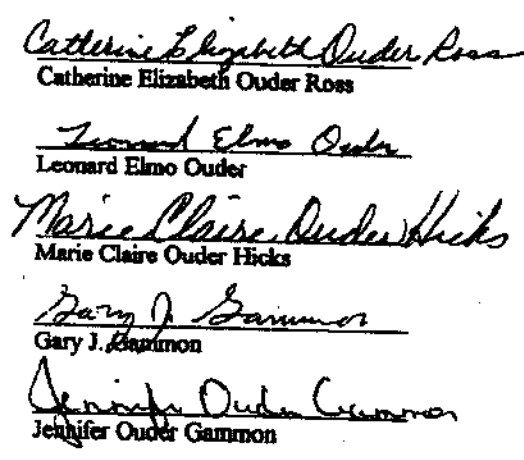 Catherine Elizabeth Ouder Ross
Catherine Elizabeth Ouder Ross
Leonard Elmo Ouder
Leonard Elmo Ouder
Marie Claire Ouder Hicks
Marie Claire Ouder Hicks
Gary J. Gammon
Gary J. Gammon
Jennifer Ouder Gammon
Jennifer Ouder Gammon